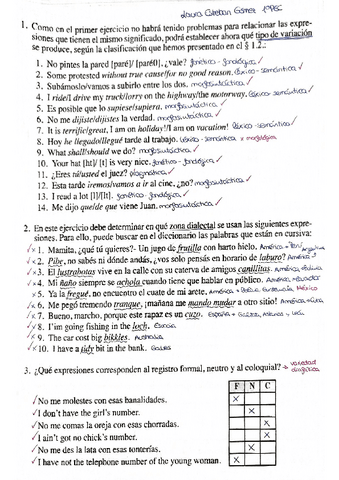 Laura Esteban Gómez 1º PEC
1. Como en el primer ejercicio no habrá tenido problemas para relacionar las expre-
siones que tienen el mismo significado, podrá establecer ahora qué tipo de variación
se produce, según la clasificación que hemos presentado en el § 1.2.:
1. No pintes la pared [paré]/ [paré0]. ¿vale? fonético-fonológica ✓
2. Some protested without true cause/for no good reason. léxico-semántica
3. Subámoslo/vamos a subirlo entre los dos. morfosintáctica ✓
4. I ride/I drive my truck/lorry on the highway/the motorway. léxico-semántica
5. Es posible que lo supiese/supiera. morfosintáctica ✓
6. No me dijiste/dijistes la verdad. morfosintáctica ✓
7. It is terrific/great, I am on holiday!/I am on vacation! léxico-semántica ✓
8. Hoy he llegado/llegué tarde al trabajo. léxico-semántica x morfológica
9. What shall/should we do? morfosintáctica ✓
10. Your hat [ht]/ [t] is very nice. fonético-fonológica ✓
11. ¿Eres tú/usted el juez? pragmática ✓
12. Esta tarde iremos/vamos a ir al cine, ¿no? morfosintáctica ✓
13. I read a lot [l]/[lt]. fonético-fonológica ✓
14. Me dijo que/de que viene Juan. morfosintáctica ✓
2. En este ejercicio debe determinar en qué zona dialectal se usan las siguientes expre-
siones. Para ello, puede buscar en el diccionario las palabras que están en cursiva:
✓x 1. Mamita, ¿qué tú quieres?- Un jugo de frutilla con harto hielo. América
✓x 2. Pibe, no sabés ni dónde andás, ¿vos solo pensás en horario de laburo? América
✓x 3. El lustrabotas vive en la calle con su caterva de amigos canillitas. América
✓x 4. Mi ñaño siempre se achola cuando tiene que hablar en público. América
✓x 5. Ya la fregué, no encuentro el cuate de mi arete. América México
✓x 6. Me pegó tremendo tranque, ¡mañana me mando mudar a otro sitio! América
✓x 7. Bueno, marcho, porque este rapaz es un cuzo. España
✓x 8. I'm going fishing in the loch. Escocia
✓x 9. The car cost big bikkies. Australia
✓x 10. I have a tidy bit in the bank. Gales
3. ¿Qué expresiones corresponden al registro formal, neutro y al coloquial? → variedad
F N C
✓ No me molestes con esas banalidades. X
✓ I don't have the girl's number. X
✓ No me comas la oreja con esas chorradas. X
✓ I ain't got no chick's number. X
✓ No me des la lata con esas tonterías. X
✓ I have not the telephone number of the young woman. X